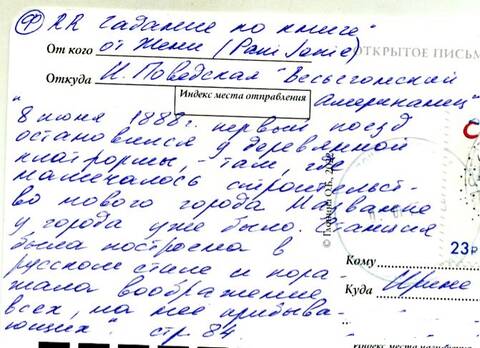 RR "Гадание по книге"
От кого от Жени (Pani Janie)
ОТКРЫТОЕ ПИСЬМ
Откуда И. Поведская "Весьегонский
Индекс места отправления
американец"
"8 июня 1888 г. первый поезд
остановился у деревянной
платформы, - там, где
намечалось строительст-
во нового города. Название
у города уже было. Станция
была построена в
русском стиле и пора-
жала воображение
всех, на нее прибыва-
ющих". стр. 84
23р
Кому
Куда Ирине